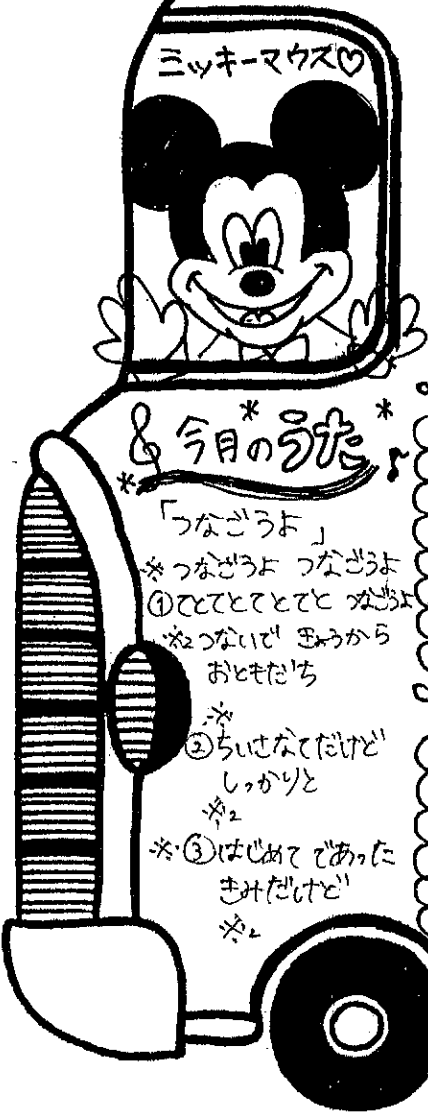 ミッキーマウス♡
今月のうた
「つなごうよ」
※つなごうよ つなごうよ
①てとてとてとてと つなごうよ
※2つないで きょうから
おともだち
※
②ちいさなてだけど
しっかりと
※2
※③はじめて であった
きみだけど
※2